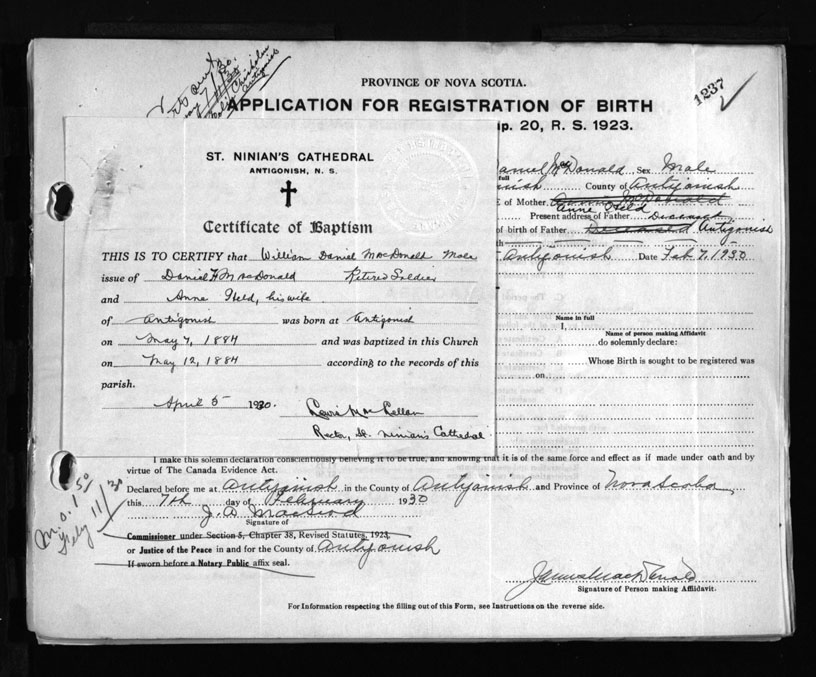 PROVINCE OF NOVA SCOTIA.
1237
APPLICATION FOR REGISTRATION OF BIRTH
p. 20, R. S. 1923.
ST. NINIAN'S CATHEDRAL
ANTIGONISH, N. S.
Certificate of Baptism
THIS IS TO CERTIFY that William Daniel MacDonald Male
issue of Daniel H MacDonald Retired Soldier
and Anne Held, his wife
of Antigonish was born at Antigonish
on May 7, 1884 and was baptized in this Church
on May 12, 1884 according to the records of this
parish.
April 5 1930.
Rector, St. Ninian's Cathedral
Daniel McDonald Sex Male
full
nish County of Antigonish
E of Mother
Anne Held
Present address of Father Deceased
of birth of Father Deceased Antigonish
th
Antigonish Date Feb 7, 1930
Name in full
I,
Name of person making Affidavit
do solemnly declare:
Whose Birth is sought to be registered was
on
I make this solemn declaration conscientiously believing it to be true, and knowing that it is of the same force and effect as if made under oath and by
virtue of The Canada Evidence Act.
Declared before me at Antigonish in the County of Antigonish and Province of Nova Scotia
this 7th day of February 1930
J. A. MacLeod
Signature of
Commissioner under Section 5, Chapter 38, Revised Statutes, 1923,
or Justice of the Peace in and for the County of Antigonish
If sworn before a Notary Public affix seal.
M.O. 1 50
Feby 11/30
James MacDonald
Signature of Person making Affidavit.
For Information respecting the filling out of this Form, see Instructions on the reverse side.